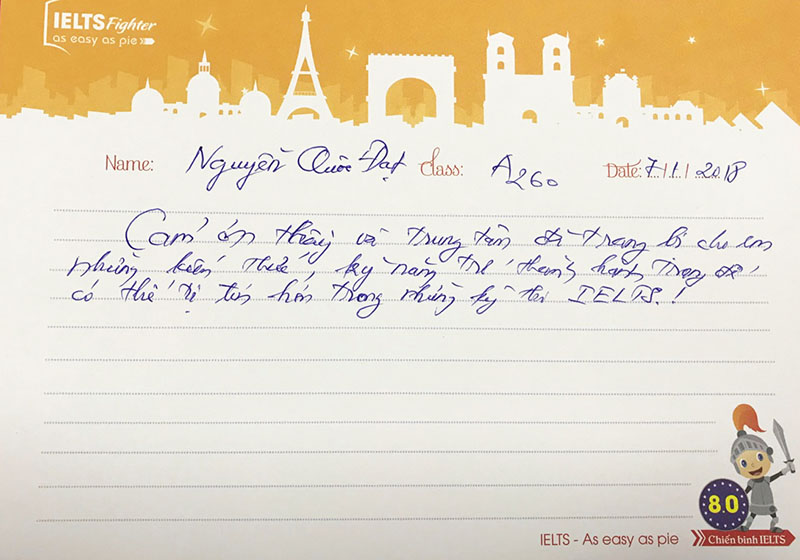 IELTS Fighter
as easy as pie
Name: Nguyễn Quốc Đạt Class: A260 Date: 7/1/2018
Cảm ơn thầy và trung tâm đã trang bị cho em
những kiến thức, kỹ năng trở thành hành trang để
có thể tự tin hơn trong những kỳ thi IELTS.!
8.0
IELTS - As easy as pie
Chiến binh IELTS